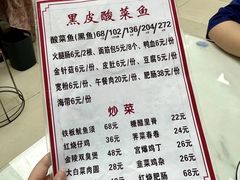 黑皮酸菜鱼
酸菜鱼(黑鱼)68/102/136/204/272
火腿肠6元/2根、面筋包5元/8个、鸭血6元/份
金针菇6元/份、皮肚6元/份、豆腐5元/份
宽粉6元/份、午餐肉20元/份、肥肠38元/份
海带6元/份
炒菜
铁板鱿鱼须 68元 糖醋里脊 22元
红烧仔鸡 36元 荠菜春卷 24元
金陵双臭煲 48元 宫爆鸡丁 26元
大白菜肉圆 28元 韭菜鸡杂 26元
28元 红烧肥肠